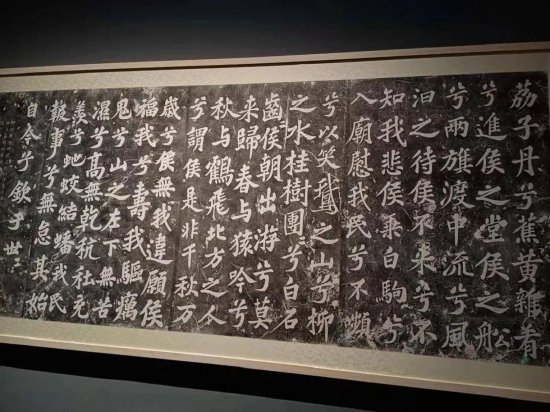 荔子丹兮蕉黄雜肴
兮進侯之堂侯之船
兮兩旗渡中流兮風
汩之待侯不來兮不
知我悲侯乘白駒兮
入廟慰我民兮不嚬
兮以笑鵞之山兮柳
之水桂樹團兮白石
齒侯朝出游兮莫
来歸春与猿吟兮
秋与鶴飛北方之人
兮謂侯是非千秋万
歳兮侯無我違願侯
福我兮壽我驅癘
鬼兮山之左下無苦
濕兮高無乾秔充
羡兮蛇蛟結蟠我民
報事兮無怠其始
自今兮欽于世〻